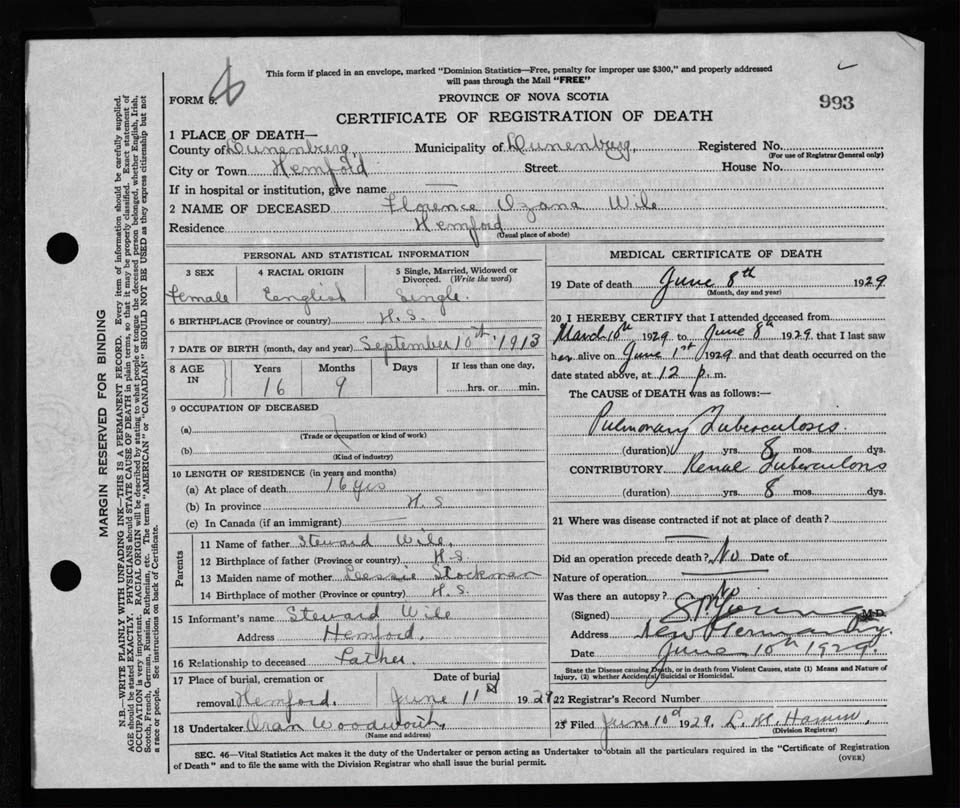 This form if placed in an envelope, marked "Dominion Statistics—Free, penalty for improper use $300," and properly addressed
will pass through the Mail "FREE"
FORM 6.
PROVINCE OF NOVA SCOTIA
993
CERTIFICATE OF REGISTRATION OF DEATH
1 PLACE OF DEATH—
County of Lunenburg, Municipality of Lunenburg, Registered No.
(For use of Registrar General only)
City or Town Hemford Street House No.
If in hospital or institution, give name —
2 NAME OF DECEASED Florence Ozana Wile
Residence Hemford
(Usual place of abode)
PERSONAL AND STATISTICAL INFORMATION
3 SEX 4 RACIAL ORIGIN 5 Single, Married, Widowed or
Divorced. (Write the word)
Female English Single.
6 BIRTHPLACE (Province or country) N.S.
7 DATE OF BIRTH (month, day and year) September 10th 1913
8 AGE IN Years Months Days If less than one day,
16 9 hrs. or min.
9 OCCUPATION OF DECEASED
(a)
(Trade or occupation or kind of work)
(b)
(Kind of industry)
10 LENGTH OF RESIDENCE (in years and months)
(a) At place of death 16 yrs
(b) In province N.S
(c) In Canada (if an immigrant) —
Parents
11 Name of father Steward Wile,
12 Birthplace of father (Province or country) N.S.
13 Maiden name of mother Stockman
14 Birthplace of mother (Province or country) N.S.
15 Informant's name Steward Wile
Address Hemford,
16 Relationship to deceased Father.
17 Place of burial, cremation or Date of burial
removal Hemford. June 11th 1929
18 Undertaker Oran Woodworth,
(Name and address)
MEDICAL CERTIFICATE OF DEATH
19 Date of death June 8th 1929
(Month, day and year)
20 I HEREBY CERTIFY that I attended deceased from
March 10th 1929 to June 8th 1929 that I last saw
her alive on June 1st 1929 and that death occurred on the
date stated above, at 12 p. m.
The CAUSE of DEATH was as follows:—
Pulmonary Tuberculosis.
(duration) yrs. 8 mos. dys.
CONTRIBUTORY Renal Tuberculosis
(duration) yrs. 8 mos. dys.
21 Where was disease contracted if not at place of death?
—
Did an operation precede death? No Date of
Nature of operation —
Was there an autopsy? No
(Signed) Young M.D.
Address New Germany.
Date June 10th 1929
State the Disease causing Death, or in death from Violent Causes, state (1) Means and Nature of
Injury, (2) whether Accidental, Suicidal or Homicidal.
22 Registrar's Record Number
23 Filed June 10th 1929.
(Division Registrar)
SEC. 46—Vital Statistics Act makes it the duty of the Undertaker or person acting as Undertaker to obtain all the particulars required in the "Certificate of Registration
of Death" and to file the same with the Division Registrar who shall issue the burial permit.
(OVER)
MARGIN RESERVED FOR BINDING
N.B.—WRITE PLAINLY WITH UNFADING INK—THIS IS A PERMANENT RECORD. Every item of information should be carefully supplied.
AGE should be stated EXACTLY. PHYSICIANS should STATE CAUSE OF DEATH in plain terms, so that it may be properly classified. Exact statement of
OCCUPATION is very important. RACIAL ORIGIN will be described by stating to what people or tongue the deceased person belonged, whether English, Irish,
Scotch, French, German, Russian, Ruthenian, etc. The terms "AMERICAN" or "CANADIAN" SHOULD NOT BE USED as they express citizenship but not
a race or people. See instructions on back of Certificate.